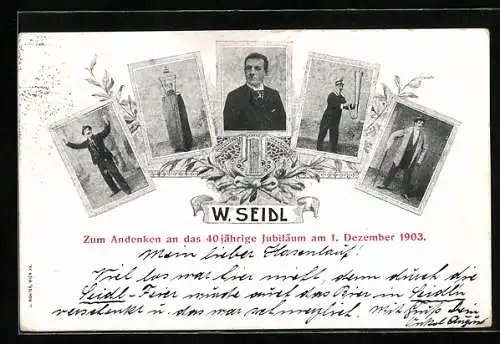 W. SEIDL
Zum Andenken an das 40jährige Jubiläum am 1. Dezember 1903.
Mein lieber Hasenlauf!
Viel los war hier nicht, denn durch die
Seidl-Feier wurde auch das Bier in Seidln
verschenkt u. das war schmerzlich. Mit Gruß Dein
Onkel August